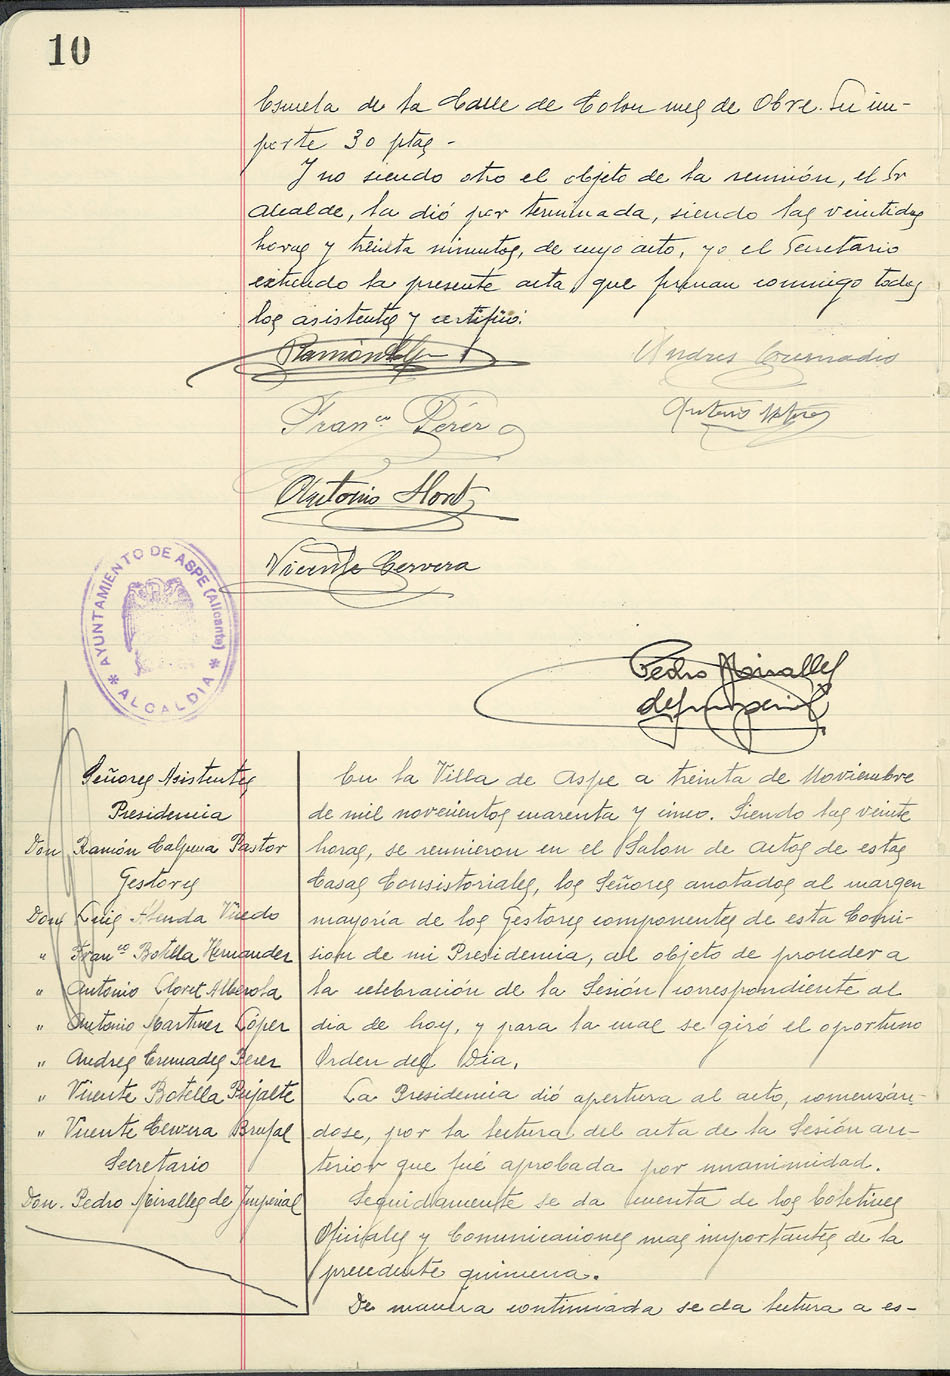 10
Escuela de la Calle de Colon mes de Obre. Su im-
porte 30 ptas -
Y no siendo otro el objeto de la reunión, el Sr
Alcalde, la dió por terminada, siendo las veintidos
horas y treinta minutos, de cuyo acto, yo el Secretario
extiendo la presente acta, que firman conmigo todos
los asistentes y certifico:
Ramón
Andres Cremades
Franco. Pérez
Antonio
Antonio Lloret
Vicente Cervera
AYUNTAMIENTO DE ASPE (Alicante)
* ALCALDIA *
Pedro Miralles
de Imperial
Señores Asistentes
Presidencia
Don Ramón Calpena Pastor
Gestores
Don Luis Almda Viñedo
" Franco Botella Hernandez
" Antonio Lloret Alberola
" Antonio Martinez López
" Andres Cremades Perez
" Vicente Botella Prijalte
" Vicente Cervera Brufal
Secretario
Don. Pedro Miralles de Imperial
En la Villa de Aspe a treinta de Noviembre
de mil novecientos cuarenta y cinco. Siendo las veinte
horas, se reunieron en el Salon de actos de estas
Casas Consistoriales, los Señores anotados al margen
mayoría de los Gestores componentes de esta Comi-
sion de mi Presidencia, al objeto de proceder a
la celebración de la Sesión correspondiente al
dia de hoy, y para la cual se giró el oportuno
Orden del Dia.
La Presidencia dió apertura al acto, comenzán-
dose, por la lectura del acta de la Sesión an-
terior que fué aprobada por unanimidad.
Seguidamente se da cuenta de los Boletines
Oficiales y Comunicaciones mas importantes de la
precedente quincena.
De manera continuada se da lectura a es-